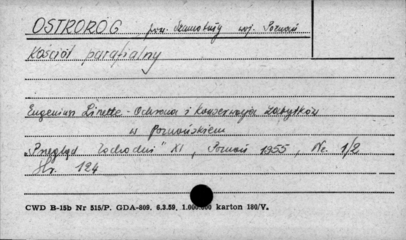 OSTRORÓG pow. Szamotuły woj. Poznań
Kościół parafialny
Eugeniusz Linette - Ochrona i konserwacja zabytków
w Poznańskiem
"Przegląd Zachodni" XI, Poznań 1955, Nr. 1/2
str. 124
CWD B-15b Nr 515/P. GDA-809. 6.3.59. 1.000.000 karton 180/V.